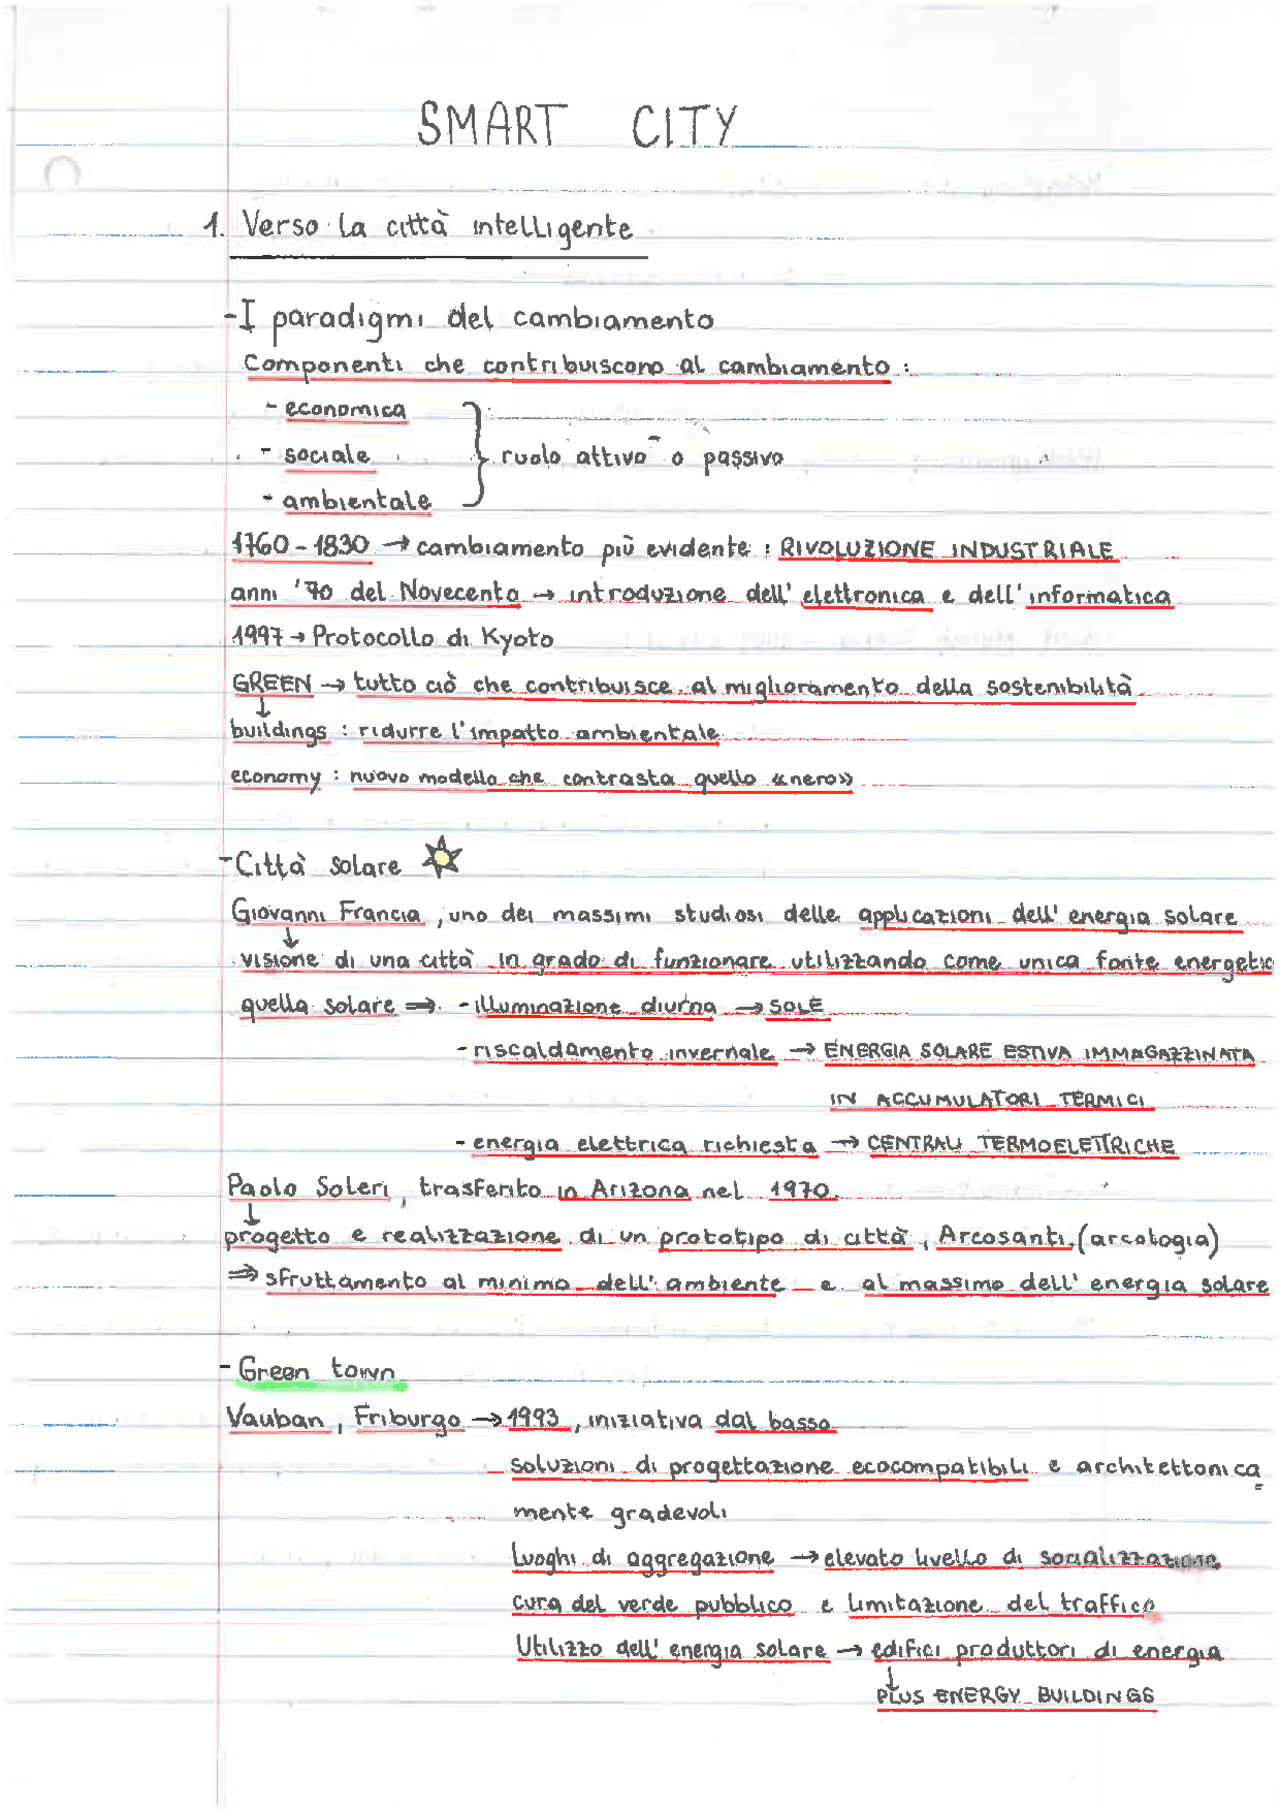 SMART CITY
1. Verso la città intelligente
- I paradigmi del cambiamento
Componenti che contribuiscono al cambiamento :
- economica
- sociale
- ambientale
} ruolo attivo o passivo
1760 - 1830 → cambiamento più evidente : RIVOLUZIONE INDUSTRIALE
anni '70 del Novecento → introduzione dell' elettronica e dell' informatica
1997 → Protocollo di Kyoto
GREEN → tutto ciò che contribuisce al miglioramento della sostenibilità
↓
buildings : ridurre l'impatto ambientale
economy : nuovo modello che contrasta quello «nero»
- Città solare
Giovanni Francia , uno dei massimi studiosi delle applicazioni dell' energia solare
↓
visione di una città in grado di funzionare utilizzando come unica fonte energetic
quella solare ⇒ - illuminazione diurna → SOLE
- riscaldamento invernale → ENERGIA SOLARE ESTIVA IMMAGAZZINATA
IN ACCUMULATORI TERMICI
- energia elettrica richiesta → CENTRALI TERMOELETTRICHE
Paolo Soleri , trasferito in Arizona nel 1970.
↓
progetto e realizzazione di un prototipo di città , Arcosanti. (arcologia)
⇒ sfruttamento al minimo dell' ambiente e al massimo dell' energia solare
- Green town
Vauban , Friburgo → 1993 , iniziativa dal basso
soluzioni di progettazione ecocompatibili e architettonica=
mente gradevoli
Luoghi di aggregazione → elevato livello di socializzazione
cura del verde pubblico e limitazione del traffico
Utilizzo dell' energia solare → edifici produttori di energia
↓
PLUS ENERGY BUILDINGS